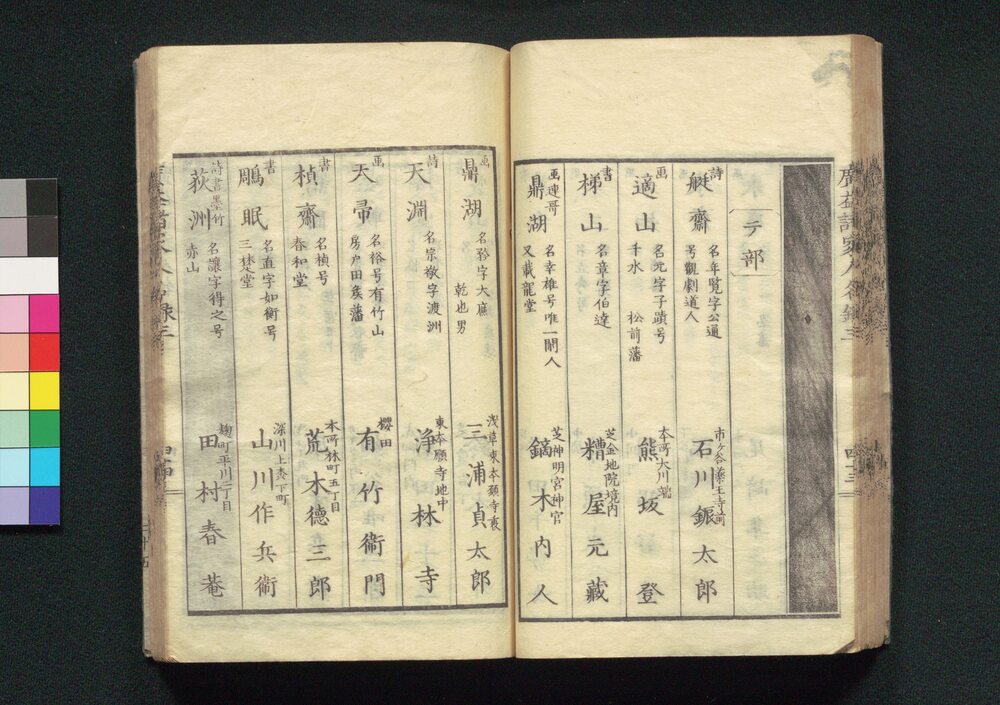 廣益諸家人名録三
四十三
テ部
詩
艇齋
名年覧字公通
号觀劇道人
市ケ谷薬王寺前
石川鋠太郎
画
適山
名元字子蹟号
千水 松前藩
本所大川端
熊坂登
書
梯山
名章字伯達
芝金地院境内
糟屋元藏
画連哥
鼎湖
名幸雄号唯一閑人
又載寵堂
芝神明宮神官
鏑木内人
画
鼎湖
名矜字大
乾也男
浅草東本願寺裏
三浦貞太郎
詩
天淵
名宗徹字渡洲
東本願寺地中
浄林寺
画
天帚
名裕号有竹山
房戸田矦藩
櫻田
有竹衛門
書
楨齋
名楨号
春和堂
本所林町五丁目
荒木德三郎
書
鵰眠
名直字如衡号
三楚堂
深川上森下町
山川作兵衛
詩書墨竹
荻洲
名讓字得之号
赤山
麹町平川二丁目
田村春菴
四十四